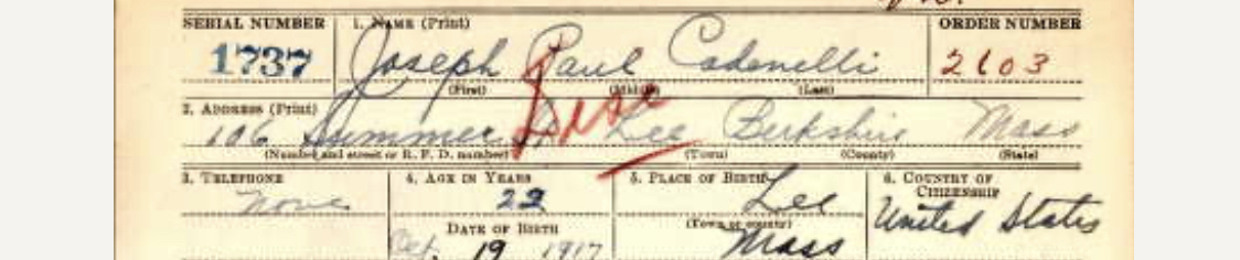 SERIAL NUMBER 1. NAME (Print) ORDER NUMBER
1737 Joseph Paul Cadenelli 2103
(First) (Middle) (Last)
Disc
2. ADDRESS (Print)
106 Summer St. Lee Berkshire Mass
(Number and street or R. F. D. number) (Town) (County) (State)
3. TELEPHONE 4. AGE IN YEARS 5. PLACE OF BIRTH 6. COUNTRY OF
CITIZENSHIP
None 22 Lee United States
DATE OF BIRTH (Town or county)
Oct. 19 1917 Mass